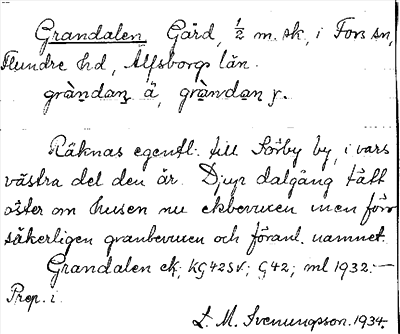 Grandalen Gård, ½ m. sk, i Fors sn,
Flundre hd, Älfsborgs län.
gràndan ä, gràndan y.
Räknas egentl. till Sörby by, i vars
västra del den är. Djup dalgång tätt
öster om husen nu ekbevuxen men förr
säkerligen granbevuxen och föranl. namnet.
Grandalen ek; KG42SV; G42; ml 1932.—
Prep. i.
L. M. Svenungsson. 1934.